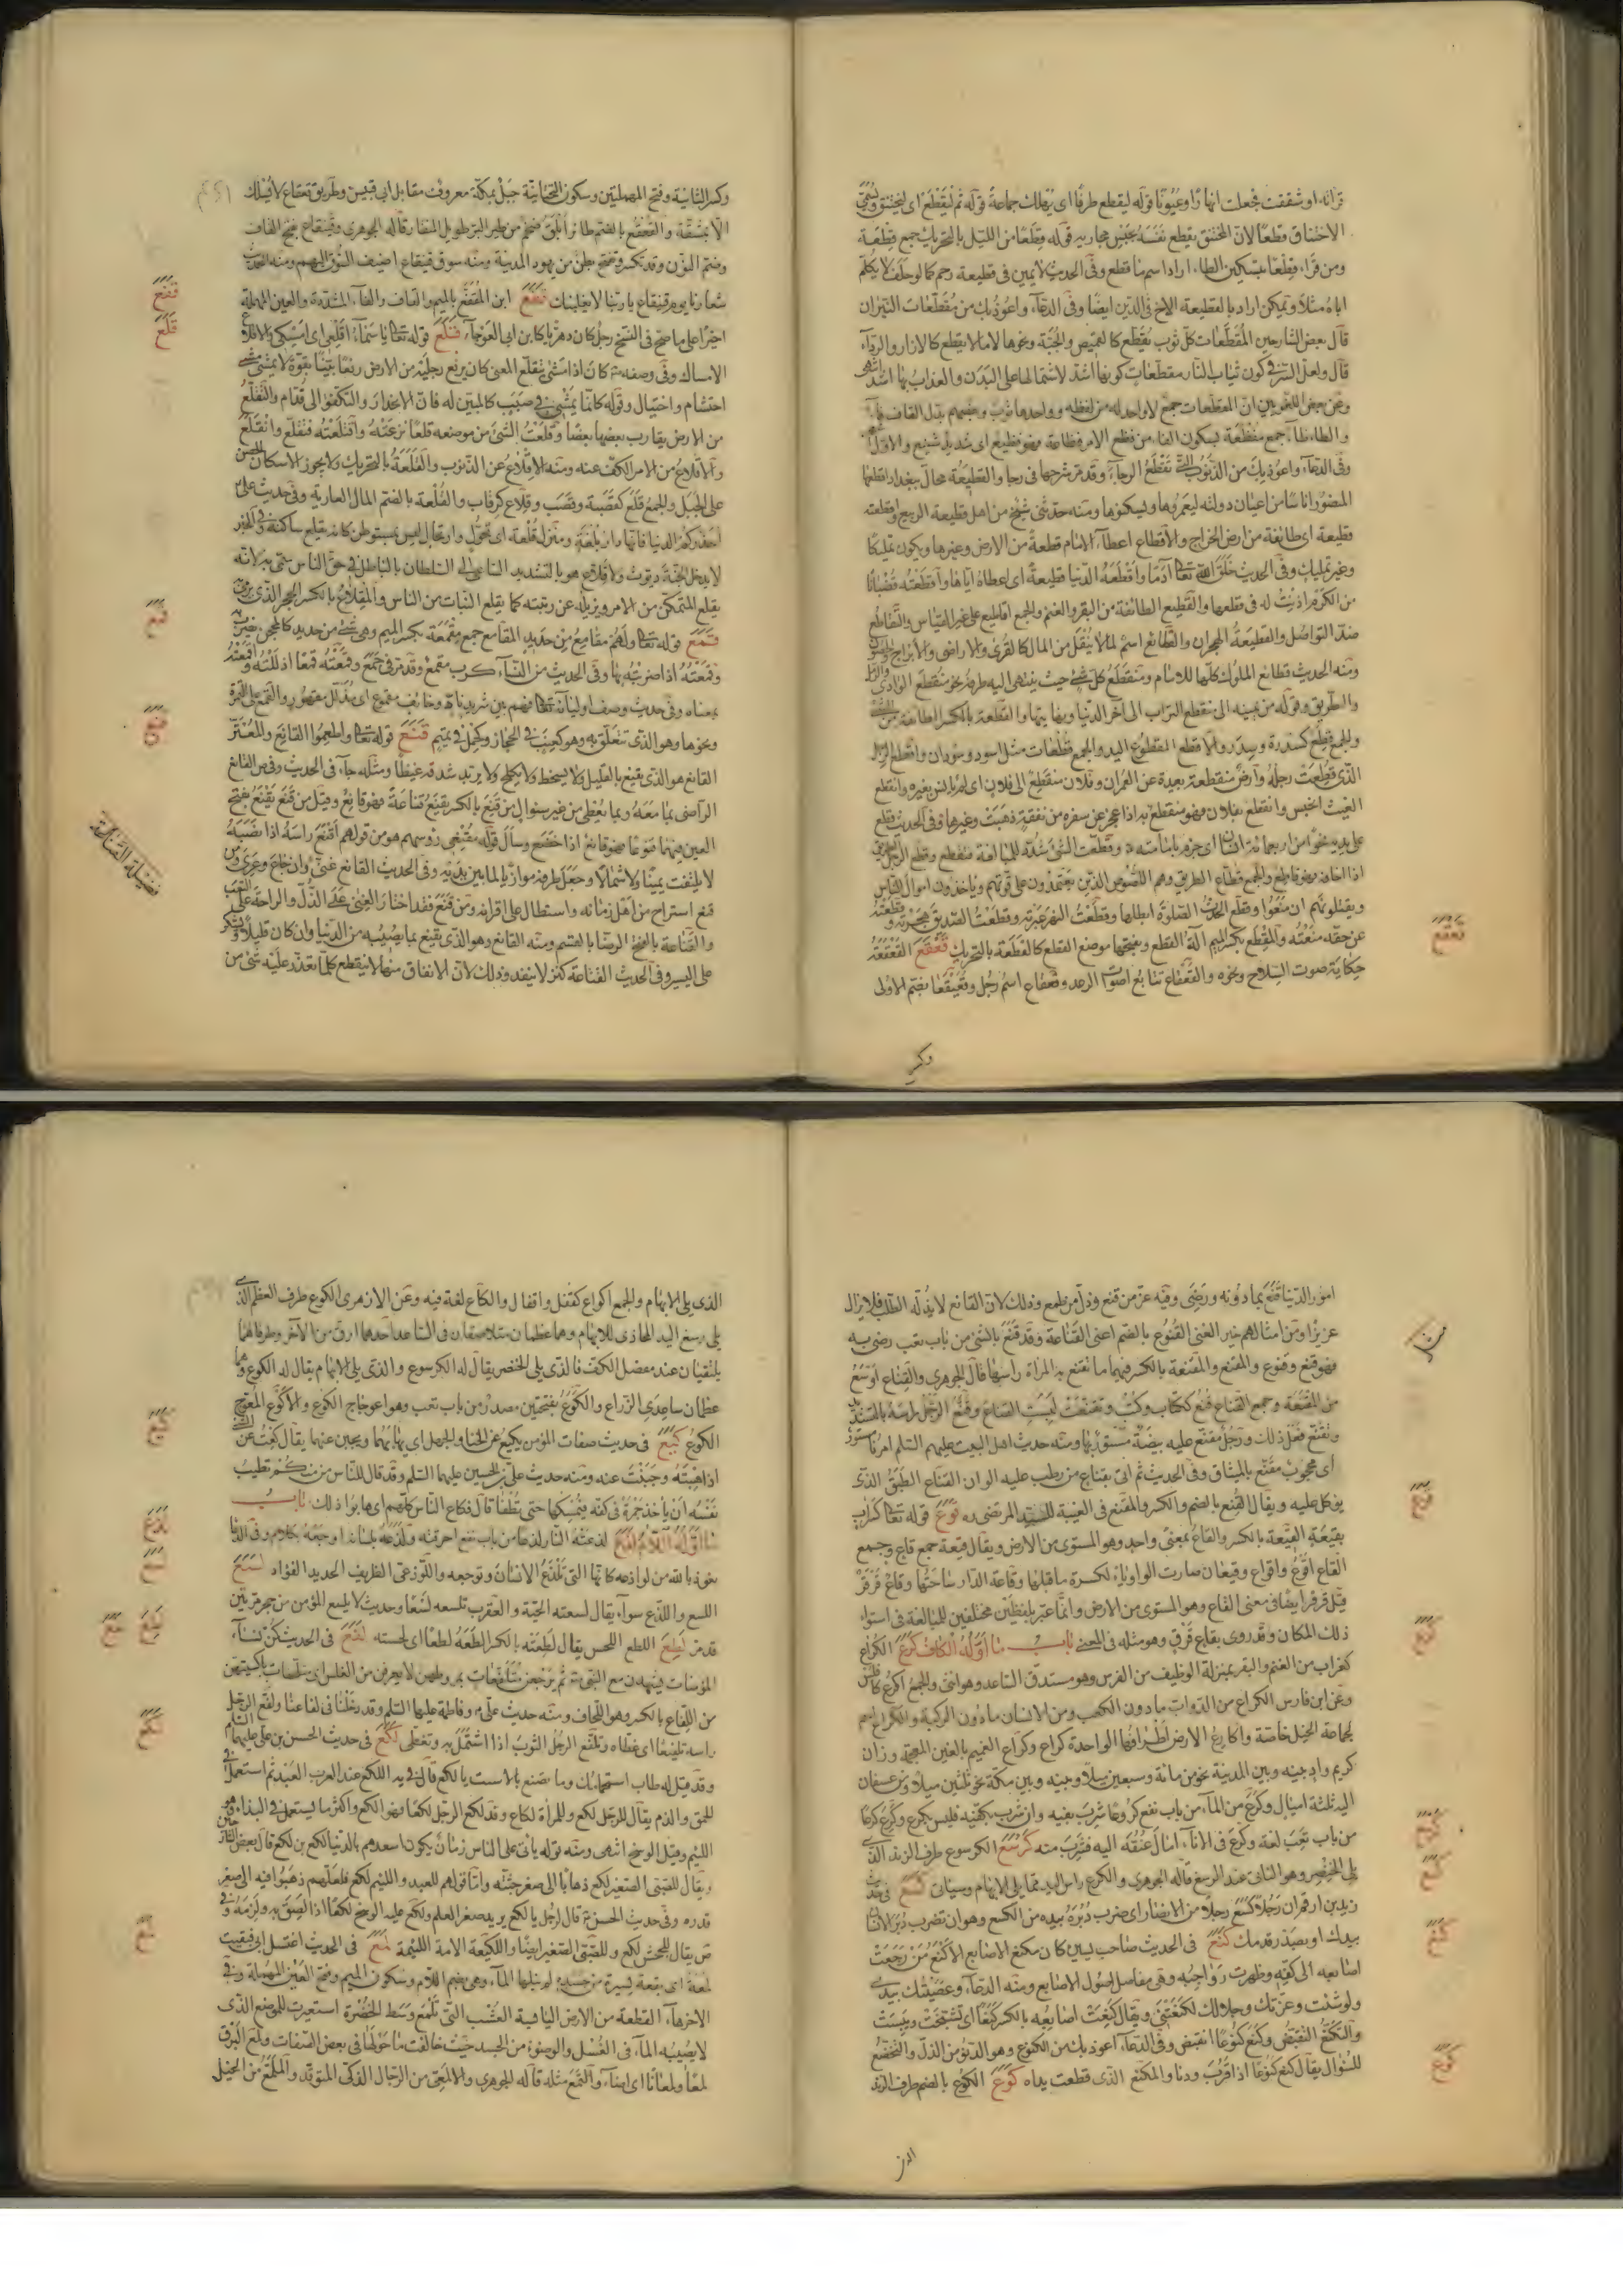 قرانه او شققت فجعلت انهارًا وعيونًا قوله ليقطع طرفًا اى يهلك جماعة قوله ثم ليقطع اى ليختنق وسمى
الاختناق قطعًا لان المختنق يقطع نفسه بحبس مجاريه قوله وقطعا من الليل بالتحريك جمع قطعة
ومن قراء قطعًا بتسكين الطاء اراد اسم ما قطع وفى الحديث لا يمين فى قطيعة رحم كما لو حلف لا يكلم
اباه مثلا ويمكن اراد بالقطيعة الاخ فى الدين ايضا وفى الدعاء واعوذ بك من مقطعات النيران
قال بعض الشارحين المقطعات كل ثوب يقطع كالقميص والجبة ونحوها لا ما لا يقطع كالازار والرداء
قال ولعل السر فى كون ثياب النار مقطعات كونها اشد لاشتمالها على البدن والعذاب بها اشد انتهى
وعن بعض اللغويين ان المقطعات جمع لا واحد له من لفظه وواحدها ثوب وبعضهم بدل القاف فاء
والطاء ظاء جمع مفظعة بسكون الفاء من فظع الامر فظاعة فهو فظيع اى شديد شنيع والاول
وفى الدعاء واعوذ بك من الذنوب التى تقطع الرجاء وقد مر شرحها فى رجا والقطيعة محال ببغداد اقطعها
المنصور اناسًا من اعيان دولته ليعمروها ويسكنوها ومنه حدثنى شيخ من اهل قطيعة الربيع واقطعته
قطيعة اى طائفة من ارض الخراج والاقطاع اعطاء الامام قطعة من الارض وغيرها ويكون تمليكا
وغير تمليك وفى الحديث خلق الله تعالى آدم واقطعه الدنيا قطيعة اى اعطاه اياها واقطعته قضبانا
من الكرم اذنت له فى قطعها والقطيع الطائفة من البقر والغنم والجمع اقاطيع على غير القياس والتقاطع
ضد التواصل والقطيعة الهجران والقطائع اسم لما لا ينقل من المال كالقرى والاراضى والابراج والحصون
ومنه الحديث قطائع الملوك كلها للامام ومنقطع كل شىء حيث ينتهى اليه طرفه نحو منقطع الوادى والرمل
والطريق وقوله من يمينه الى منقطع التراب الى آخر الدنيا والقطعة بالكسر الطائفة من الشىء
والجمع قطع كسدرة وسدر والاقطع المقطوع اليد والجمع قطعان مثل اسود وسودان واقطع الرجل
الذى قطعت رجله وارض منقطعة بعيدة عن العمران وفلان منقطع الى فلان اى لم يانس بغيره وانقطع
الغيث احتبس وانقطع بفلان فهو منقطع به اذا عجز عن سفره من نفقة ذهبت وغيرها وفى الحديث قطع
اذا اخاف فهو قاطع والجمع قطاع الطريق وهم اللصوص الذين يعتمدون على قوتهم وياخذون اموال الناس
ويقتلونهم ان منعوا وقطع الحدث الصلوة ابطلها وقطعت النهر عبرته وقطعت الصديق هجرته وقطعته
عن حقه منعته والمقطع بكسر الميم آلة القطع وبفتحها موضع القطع كالقطعة بالتحريك قعقع القعقعة
حكاية صوت السلاح ونحوه والقعقاع تتابع اصوات الرعد وقعقاع اسم رجل وقعيقعا بضم الاولى
قعقع
وكسر
وكسر الثانية وفتح المهملتين وسكون التحتانية جبل بمكة معروف مقابل ابى قبيس وطريق قعقاع لا يسلك
الا بمشقة والقعقع بالضم طائر ابلق ضخم من طير البر طويل المنقار قاله الجوهرى وقينقاع بفتح القاف
وضم النون وقد تكسر وتفتح بطن من يهود المدينة ومنه سوق قينقاع اضيف السوق اليهم ومنه الحديث
شعارنا يوم قينقاع يا ربنا لا يغلبنك قفع ابن المقفع بالميم والقاف والفاء المشددة والعين المهملة
اخيرًا على ما صح فى النسخ رجل كان دهريا كابن ابى العوجاء قلع قوله تعالى يا سماء اقلعى اى امسكى والاقلاع
الامساك وفى وصفه كان اذا مشى يتقلع المعنى كان يرفع رجليه من الارض رفعا بينا بقوة لا يمشى مشى
احتشام واختيال وقوله كانما يمشى فى صبب كالمبين له فان الانحدار والتكفؤ الى قدام والتقلع
من الارض يقارب بعضها بعضا وقلعت الشىء من موضعه قلعا نزعته واقتلعته فتقلع وانقلع
والاقلاع من الامر الكف عنه ومنه الاقلاع عن الذنوب والقلعة بالتحريك ولا يجوز الاسكان الحصن
على الجبل والجمع قلع كقصبة وقصب وقلاع كرقاب والقلعة بالضم المال العارية وفى حديث على
احذركم الدنيا فانها دار بلغة ومنزل قلعة اى تحول وارتحال ليس بمستوطن كانه يقلع ساكنه وفى الخبر
لا يدخل الجنة ديوث ولا قلاع هو بالتشديد الساعى الى السلطان بالباطل فى حق الناس سمى به لانه
يقلع المتمكن من الامر ويزيله عن رتبته كما يقلع النبات من الناس والمقلاع بالكسر الحجر الذى يرمى به
قمع قوله تعالى ولهم مقامع من حديد المقامع جمع مقمعة بكسر الميم وهى شىء من حديد كالمحجن يضرب به
وقمعته اذا ضربته بها وفى الحديث من النساء كرب مقمع وقد مر فى جمع وقمعته قمعا اذللته واقمعته
بمعناه وفى حديث وصف اوليائه تعالى فهم بين شريد ناد وخائف مقموع اى مذلل مقهور والقمع على التمرة
ونحوها وهو الذى تتعلق به وهو كعنب فى الحجاز وكحمل فى تميم قنع قوله تعالى واطعموا القانع والمعتر
القانع هو الذى يقنع بالقليل ولا يسخط ولا يكلح ولا يربد شدقه غيظا ومثله جاء فى الحديث وفى ص القانع
الراضى بما معه وبما يعطى من غير سؤال من قنع بالكسر يقنع قناعة فهو قانع وقيل من قنع يقنع بفتح
العين فيهما قنوعا فهو قانع اذا خضع وسأل قوله مقنعى رؤسهم هو من قولهم اقنع راسه اذا نصبه
لا يلتفت يمينا ولا شمالا وجعل طرفه موازيا لما بين يديه وفى الحديث القانع غنى وان جاع وعرى ومن
قنع استراح من اهل زمانه واستطال على اقرانه ومن قنع فقد اختار الغنى على الذل والراحة على التعب
والقناعة بالفتح الرضا بالقسم ومنه القانع وهو الذى يقنع بما يصيبه من الدنيا وان كان قليلا ويشكر
على اليسير وفى الحديث القناعة كنز لا ينفد وذلك لان الانفاق منها لا ينقطع كلما تعذر عليه شىء من
قفع
قلع
قمع
قنع
فضيلة القناعة
امور الدنيا قنع بما دونه ورضى وفيه عز من قنع وذل من طمع وذلك لان القانع لا يذله الطلب فلا يزال
عزيزا ومن امثالهم خير الغنى القنوع بالضم اعنى القناعة وقد قنع بالشىء من باب تعب رضى به
فهو قنع وقنوع والمقنع والمقنعة بالكسر فيهما ما تقنع به المراة راسها قال الجوهرى والقناع اوسع
من المقنعة وجمع القناع قنع ككتاب وكتب وتقنعت لبست القناع وقنع الرجل راسه بالتشديد
وتقنع فعل ذلك ورجل مقنع عليه بيضة ومنه حديث اهل البيت عليهم السلم امرنا مستور
اى محجوب مقنع بالميثاق وفى الحديث ثم اتى بقناع من رطب عليه الوان القناع الطبق الذى
يؤكل عليه ويقال القنع بالضم والكسر والمقنع فى الغيبة للسيد المرتضى ره قوع قوله تعالى كسراب
بقيعة القيعة بالكسر والقاع بمعنى واحد وهو المستوى من الارض ويقال قيعة جمع قاع وجمع
القاع اقوع واقواع وقيعان صارت الواو ياء لكسرة ما قبلها وقاعة الدار ساحتها وقاع قرقر
قيل قرقر ايضا فى معنى القاع وهو المستوى من الارض وانما عبر بلفظين مختلفين للمبالغة فى استواء
ذلك المكان وقد روى بقاع قرق وهو مثله فى المعنى باب ما اوله الكاف كرع الكراع
كغراب من الغنم والبقر بمنزلة الوظيف من الفرس وهو مستدق الساعد وهو انثى والجمع اكرع كافلس
وعن ابن فارس الكراع من الدواب ما دون الكعب ومن الانسان ما دون الركبة والكراع اسم
لجماعة الخيل خاصة واكارع الارض اطرافها الواحدة كراع وكراع الغميم بالغين المعجمة وزان
كريم واد بينه وبين المدينة نحو من مائة وسبعين ميلا وبينه وبين مكة نحو ثلثين ميلا ومن عسفان
اليه ثلثة اميال وكرع من الماء من باب نفع كروعا شرب بفيه وان شرب بكفيه فليس بكرع وكرع كرعا
من باب تعب لغة وكرع فى الاناء امال عنقه اليه فشرب منه كرسع الكرسوع طرف الزند الذى
يلى الخنصر وهو الناتى عند الرسغ قاله الجوهرى والكوع راس اليد مما يلى الابهام وسيأتى كسع فى حديث
زيد بن ارقم ان رجلا كسع رجلا من الانصار اى ضرب دبره بيده من الكسع وهو ان تضرب دبر الانسان
بيدك او بصدر قدمك كنع فى الحديث صاحب ليس كان مكنع الاصابع الاكنع من رجعت
اصابعه الى كفه وظهرت رواجبه وهى مفاصل اصول الاصابع ومنه الدعاء وعصيتك بيدى
ولو شئت وعزتك وجلالك لكنعتنى ويقال كنعت اصابعه بالكسر كنعا اى تشنجت ويبست
والتكنع التقبض وكنع كنوعا انقبض وفى الدعاء اعوذ بك من الكنوع وهو الدنو من الذل والتخضع
للسؤال يقال كنع كنوعا اذا قرب ودنا والمكنع الذى قطعت يداه كوع الكوع بالضم طرف الزند
قوع
كرع
كرسع
كسع
كنع
كوع
الذى
الذى يلى الابهام والجمع اكواع كقفل واقفال والكاع لغة فيه وعن الازهرى الكوع طرف العظم الذى
يلى رسغ اليد المحاذى للابهام وهما عظمان متلاصقان فى الساعد احدهما ارق من الآخر وطرفاهما
يلتقيان عند مفصل الكف فالذى يلى الخنصر يقال له الكرسوع والذى يلى الابهام يقال له الكوع وهما
عظمان ساعدى الزراع والكوع بفتحتين مصدر من باب تعب وهو اعوجاج الكوع والاكوع المعوج
الكوع كيع فى حديث صفات المؤمن يكيع عن الخنا والجهل اى يهابهما ويجبن عنهما يقال كعت عن الشىء
اذا هبته وجبنت عنه ومنه حديث على بن الحسين عليهما السلم وقد قال للناس من منكم تطيب
نفسه ان ياخذ جمرة فى كفه فيمسكها حتى تطفأ قال فكاع الناس كلهم اى هابوا ذلك باب
ما اوله اللام لذع لذعته النار لذعا من باب نفع احرقته ولذعه بلسانه اوجعه بكلام وفى الدعاء
نعوذ بالله من لواذعه كانها التى تلذع الانسان وتوجعه واللوذعى الظريف الحديد الفؤاد لسع
اللسع واللدغ سواء يقال لسعته الحية والعقرب تلسعه لسعا وحديث لا يلسع المؤمن من جحر مرتين
قد مر لطع اللطع اللحس يقال لطعته بالكسر الطعه لطعا اى لحسته لفع فى الحديث كن نساء
المؤمنات يشهدن مع النبى ثم يرجعن متلفعات بمروطهن لا يعرفن من الغلس اى متلحفات باكسيتهن
من اللفاع بالكسر وهو اللحاف ومنه حديث على وفاطمة عليهما السلم وقد دخلنا فى لفاعنا ولفع الرجل
راسه تلفيعا اى غطاه وتلفع الرجل الثوب اذا اشتمل به وتغطى لكع فى حديث الحسن بن على عليهما السلام
وقد قيل له طاب استحمامك وما يصنع بالاست يا لكع قال فى يه اللكع عند العرب العبد ثم استعمل فى
الحمق والذم يقال للرجل لكع وللمراة لكاع وقد لكع الرجل لكعا فهو الكع واكثر ما يستعمل فى النداء وهو
اللئيم وقيل الوسخ انتهى ومنه قوله ياتى على الناس زمان يكون اسعدهم بالدنيا لكع بن لكع قال بعض الشارحين
ويقال للصبى الصغير لكع ذهابا الى صغر جثته واما قولهم للعبد واللئيم لكع فلعلهم ذهبوا فيه الى صغر
قدره وفى حديث الحسن قال لرجل يا لكع يريد صغر العلم ولكع عليه الوسخ لكعا اذا لصق به ولزمه وفى
ص يقال للجحش لكع وللصبى الصغير ايضا واللكيعة الامة اللئيمة لمع فى الحديث اغتسل ابى فبقيت
لمعة اى بقعة يسيرة من جسده لم ينلها الماء وهى بضم اللام وسكون الميم وفتح العين المهملة وفى
الآخر هاء القطعة من الارض اليابسة العشب التى تلمع وسط الخضرة استعيرت للموضع الذى
لا يصيبه الماء فى الغسل والوضوء من الجسد حيث خالفت ما حولها فى بعض الصفات ولمع البرق
لمعا ولمعانا اى اضاء والتمع مثله قاله الجوهرى والالمعى من الرجال الذكى المتوقد والملمع من الخيل
كيع
لذع
لسع
لطع
لفع
لكع
لمع